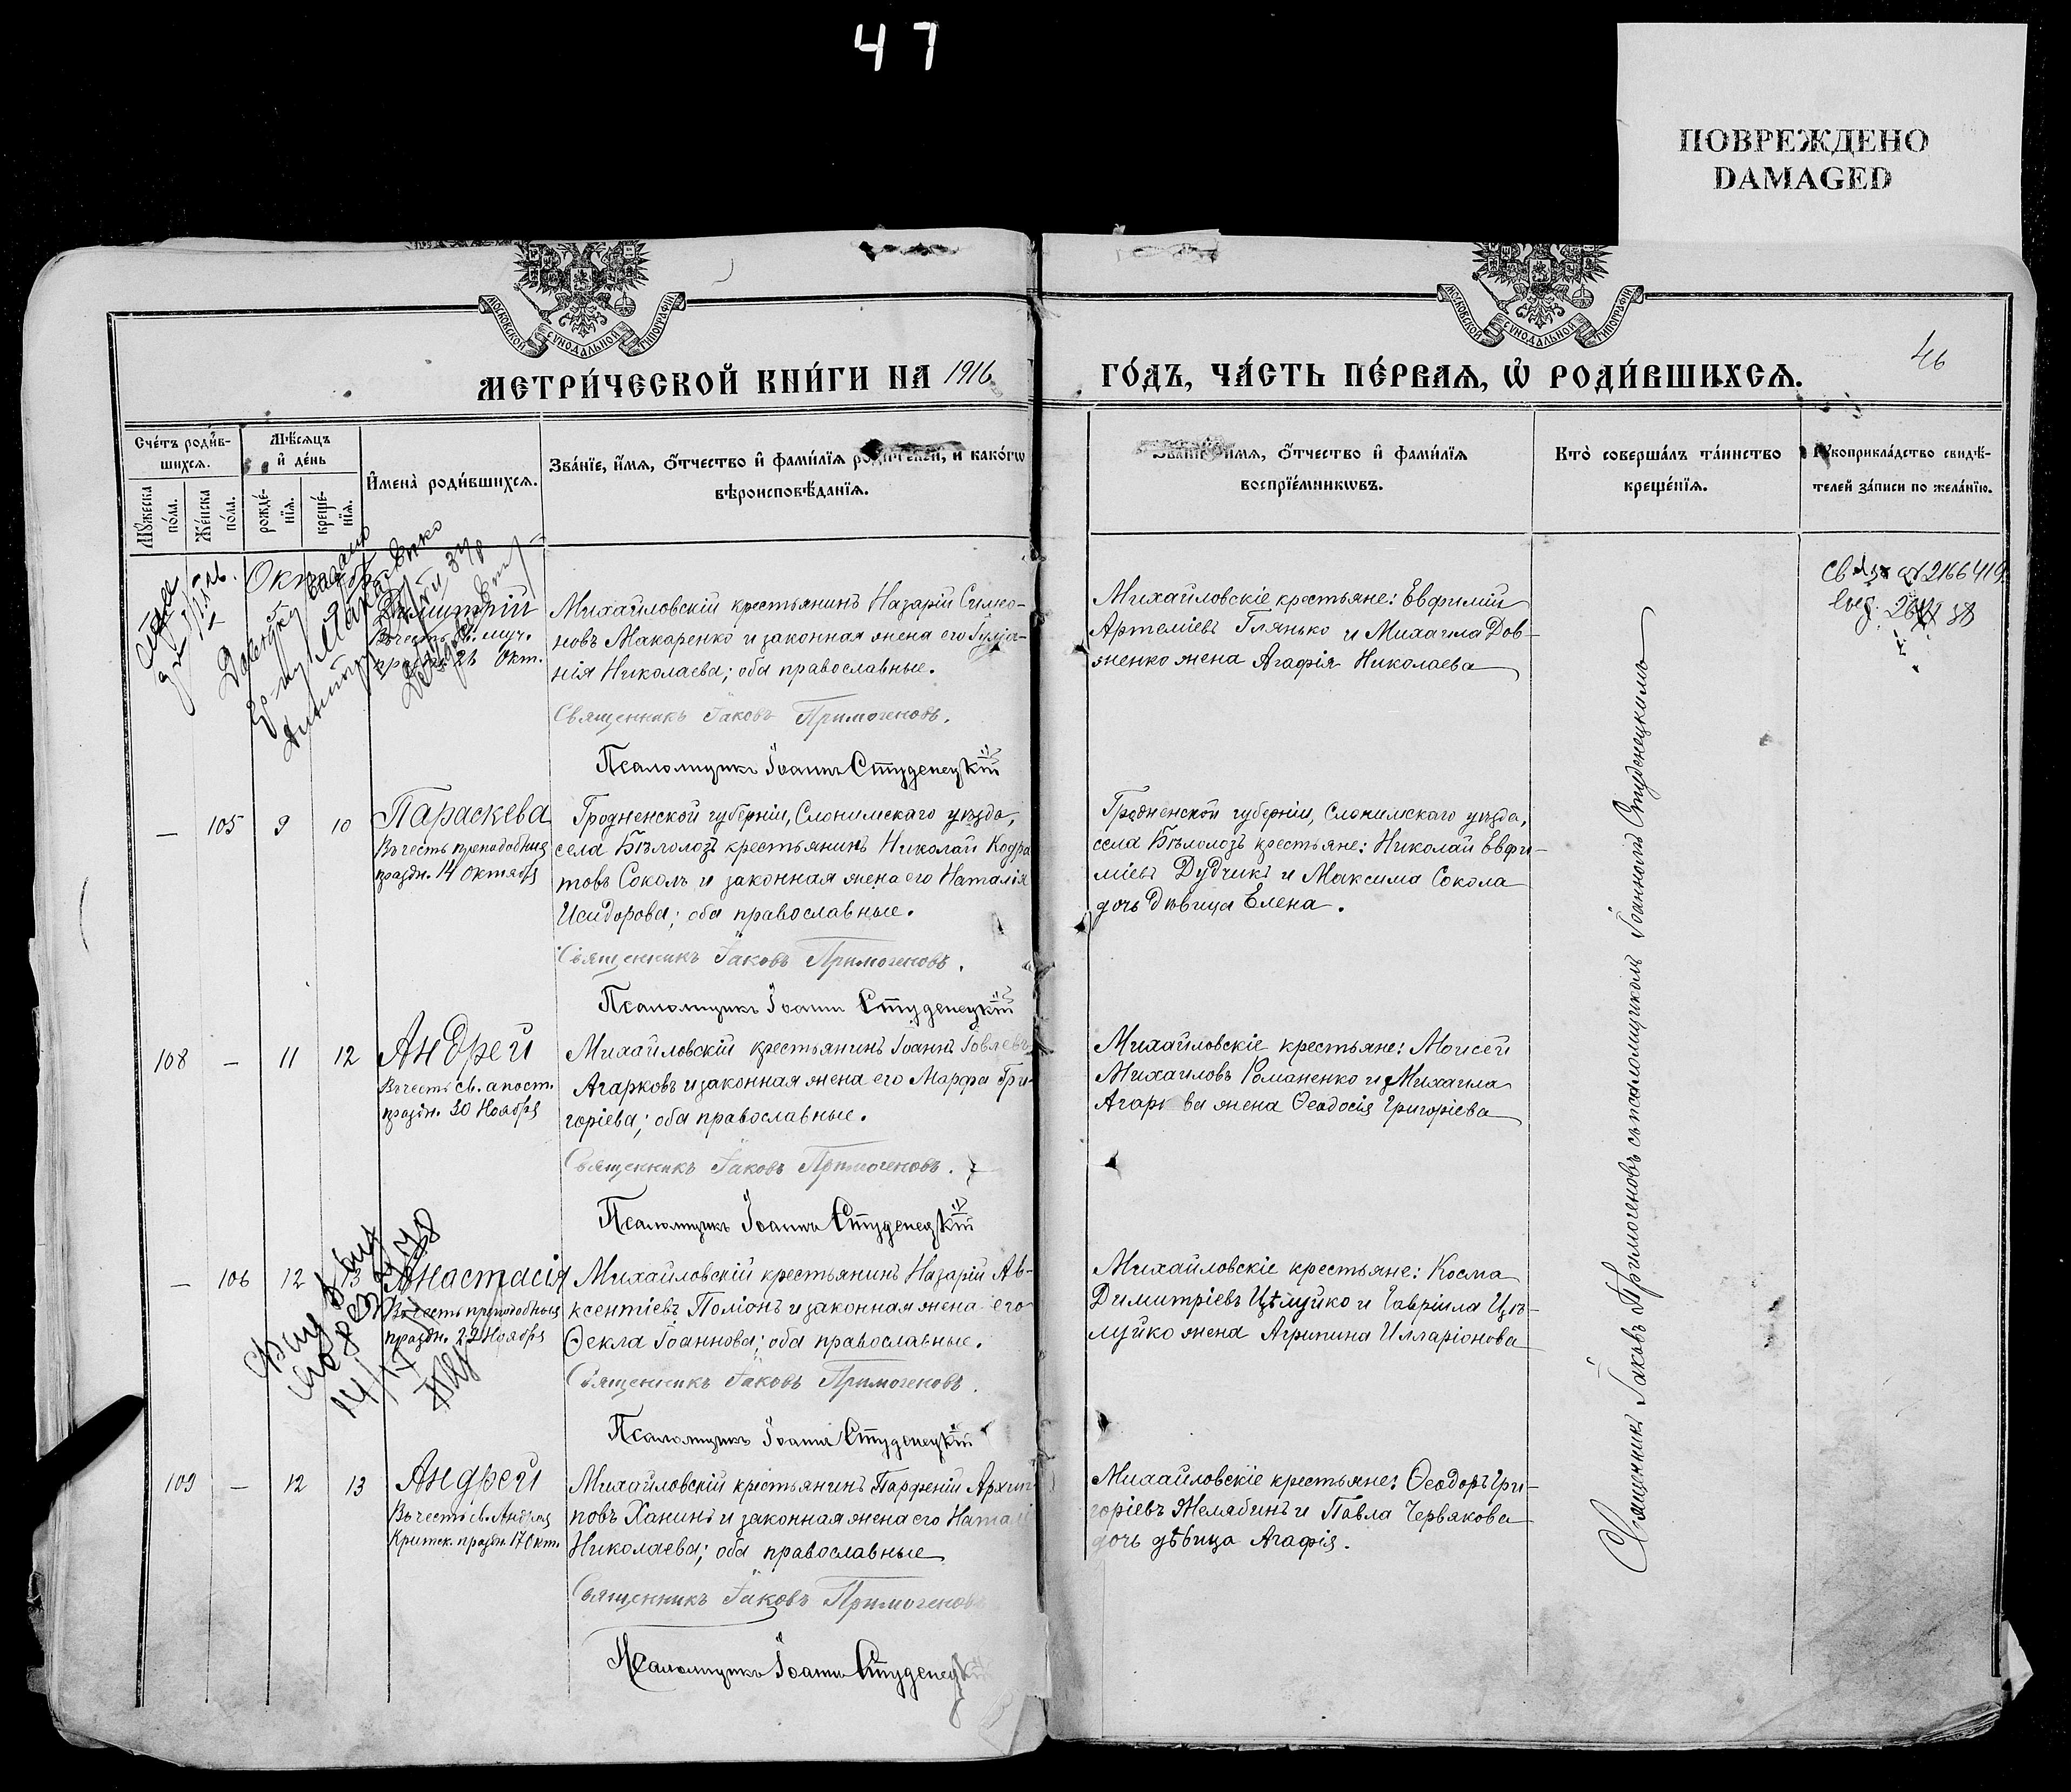 47
ПОВРЕЖДЕНО
DAMAGED
МОСКОВСКОЙ СУНОДАЛЬНОЙ ТИПОГРАФІИ
МОСКОВСКОЙ СУНОДАЛЬНОЙ ТИПОГРАФІИ
46
МЕТРИ́ЧЕСКОЙ КНИ́ГИ НА 1916
ГО́ДЪ, ЧА́СТЬ ПЕ́РВАЯ, Ѡ РОДИ́ВШИХСЯ.
Сче́тъ роди́в-
шихся.
Мѣ́сяцъ
и де́нь
Мꙋ́жеска
по́ла.
Же́нска
по́ла.
рожде́-
нїя.
креще́-
нїя.
И́мена̀ роди́вшихся.
Зва́нїе, и́мя, о́тчество и фами́лїя роди́телей, и како́гѡ
вѣроисповѣ́данїя.
Зва́нїе, и́мя, о́тчество и фами́лїя
воспрїе́мникѡвъ.
Кто̀ соверша́лъ та́инство
креще́нїя.
Рꙋкоприкла́дство свидѣ́-
телей за́писи по жела́нїю.
Димитрій
Въ честь в. муч.
праздн. 26 Окт.
Михайловскій крестьянинъ Назарій Симео-
новъ Макаренко и законная жена его
Николаева; оба православные.
Священникъ Іаковъ Примогеновъ.
Псаломщикъ Іоаннъ Студенецкій
Михайловскіе крестьяне: Евфимій
Артеміевъ Глянько и Михаила Дов-
женко жена Агафія Николаева
— 105 9 10 Параскева
Въ честь преподобныя
праздн. 14 Октября
Гродненской губерніи, Слонимскаго уѣзда,
села Бѣлолозъ крестьянинъ Николай Кодра
товъ Соколъ и законная жена его Наталія
Исидорова; оба православные.
Священникъ Іаковъ Примогеновъ.
Псаломщикъ Іоаннъ Студенецкій
Гродненской губерніи, Слонимскаго уѣзда,
села Бѣлолозъ крестьяне: Николай Евфи-
міевъ Дудчикъ и Максима Сокола
дочь дѣвица Елена.
108 — 11 12 Андрей
Въ честь св. апост.
праздн. 30 Ноября
Михайловскій крестьянинъ Іоаннъ Іовлевъ
Агарковъ и законная жена его Марфа Гри-
горіева; оба православные.
Священникъ Іаковъ Примогеновъ.
Псаломщикъ Іоаннъ Студенецкій
Михайловскіе крестьяне: Моисей
Михаиловъ Романенко и Михаила
Агаркова жена Ѳеодосія Григоріева
— 106 12 13 Анастасія
Въ честь преподобныя
праздн. 22 Ноября
Михайловскій крестьянинъ Назарій Ав-
ксентіевъ Поліонъ и законная жена его
Ѳекла Іоаннова; оба православные.
Священникъ Іаковъ Примогеновъ.
Псаломщикъ Іоаннъ Студенецкій
Михайловскіе крестьяне: Косма
Димитріевъ Цѣлуйко и Гавріила Цѣ-
луйко жена Агрипина Илларіонова
109 — 12 13 Андрей
Въ честь св. Андрея
Критск. праздн. 17 Окт.
Михайловскій крестьянинъ Парфеній Архип-
повъ Ханинъ и законная жена его Наталі
Николаева; оба православные
Священникъ Іаковъ Примогеновъ
Псаломщикъ Іоаннъ Студенецкій
Михайловскіе крестьяне: Ѳеодоръ Гри-
горіевъ Желябинъ и Павла Червякова
дочь дѣвица Агафія.
Священникъ Іаковъ Примогеновъ съ псаломщикомъ Іоанномъ Студенецкимъ